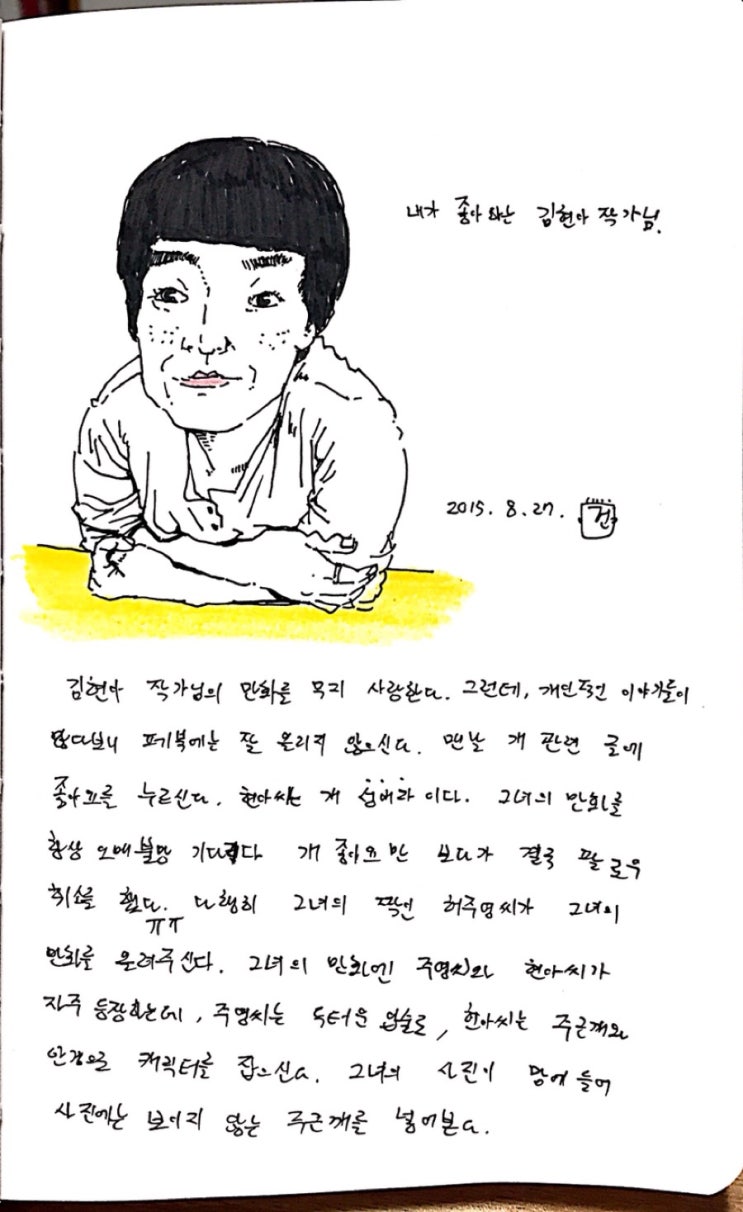 내가 좋아하는 김현아 작가님.
2015. 8. 27. 건
김현아 작가님의 만화를 무지 사랑한다. 그런데, 개인적인 이야기들이
많다보니 페기북에는 잘 올리지 않으신다. 맨날 개 관련 글에
좋아요를 누르신다. 현아씨는 개 이다. 그녀의 만화를
항상 오매불망 기다리다 개 좋아요만 보다가 결국 팔로우
취소를 했다. ㅠㅠ 다행히 그녀의 짝인 허주영씨가 그녀의
만화를 올려주신다. 그녀의 만화엔 주영씨와 현아씨가
자주 등장하는데, 주영씨는 두터운 입술로, 현아씨는 주근깨와
안경으로 캐릭터를 잡으신다. 그녀의 사진이 맘에 들어
사진에는 보이지 않는 주근깨를 넣어본다.